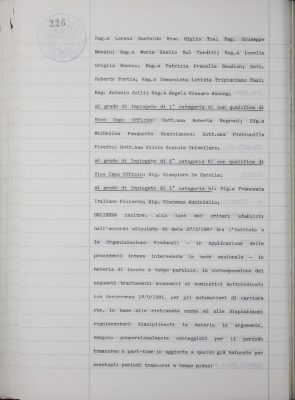 226
Rag.a Lorenz Gastaldo Brac Giglio Tos; Rag. Giuseppe
Rag.a Maria Edella Ruà Tarditi; Rag.a Lorella
Origlia Rag.a Patrizia Fracella Dott.
Roberto Rag.a Immacolata Letizia Tripisciano Pani;
Rag. Antonio Celli; Rag.a Angela
al grado di Impiegato di 1^ categoria a) con qualifica di
Vice Capo Ufficio: Dott.ssa Roberta Negroni; Sig.a
Michelina Dott.ssa Pietronilla
Piretto; Dott.ssa Silvia Crivellaro;
al grado di Impiegato di 1^ categoria b) con qualifica di
Vice Capo Ufficio: Sig. Giampiero De Carolis;
al grado di Impiegato di 1^ categoria b): Sig.a Francesca
Italiano Sig. Vincenzo
DELIBERA inoltre, alla luce dei criteri stabiliti
nell'accordo stipulato in data 27/2/1987 tra l'Istituto e
le Organizzazioni Sindacali - in applicazione delle
precedenti intese intervenute in sede nazionale - in
materia di lavoro a tempo parziale, la corresponsione dei
seguenti trattamenti economici ai nominativi sottoindicati
con decorrenza per gli automatismi di carriera
che, in base alle richiamate norme ed alle disposizioni
regolamentari disciplinanti la materia in argomento,
vengono proporzionalmente conteggiati per il periodo
trascorso a part-time in aggiunta a quello già maturato per
eventuali periodi trascorsi a tempo pieno: